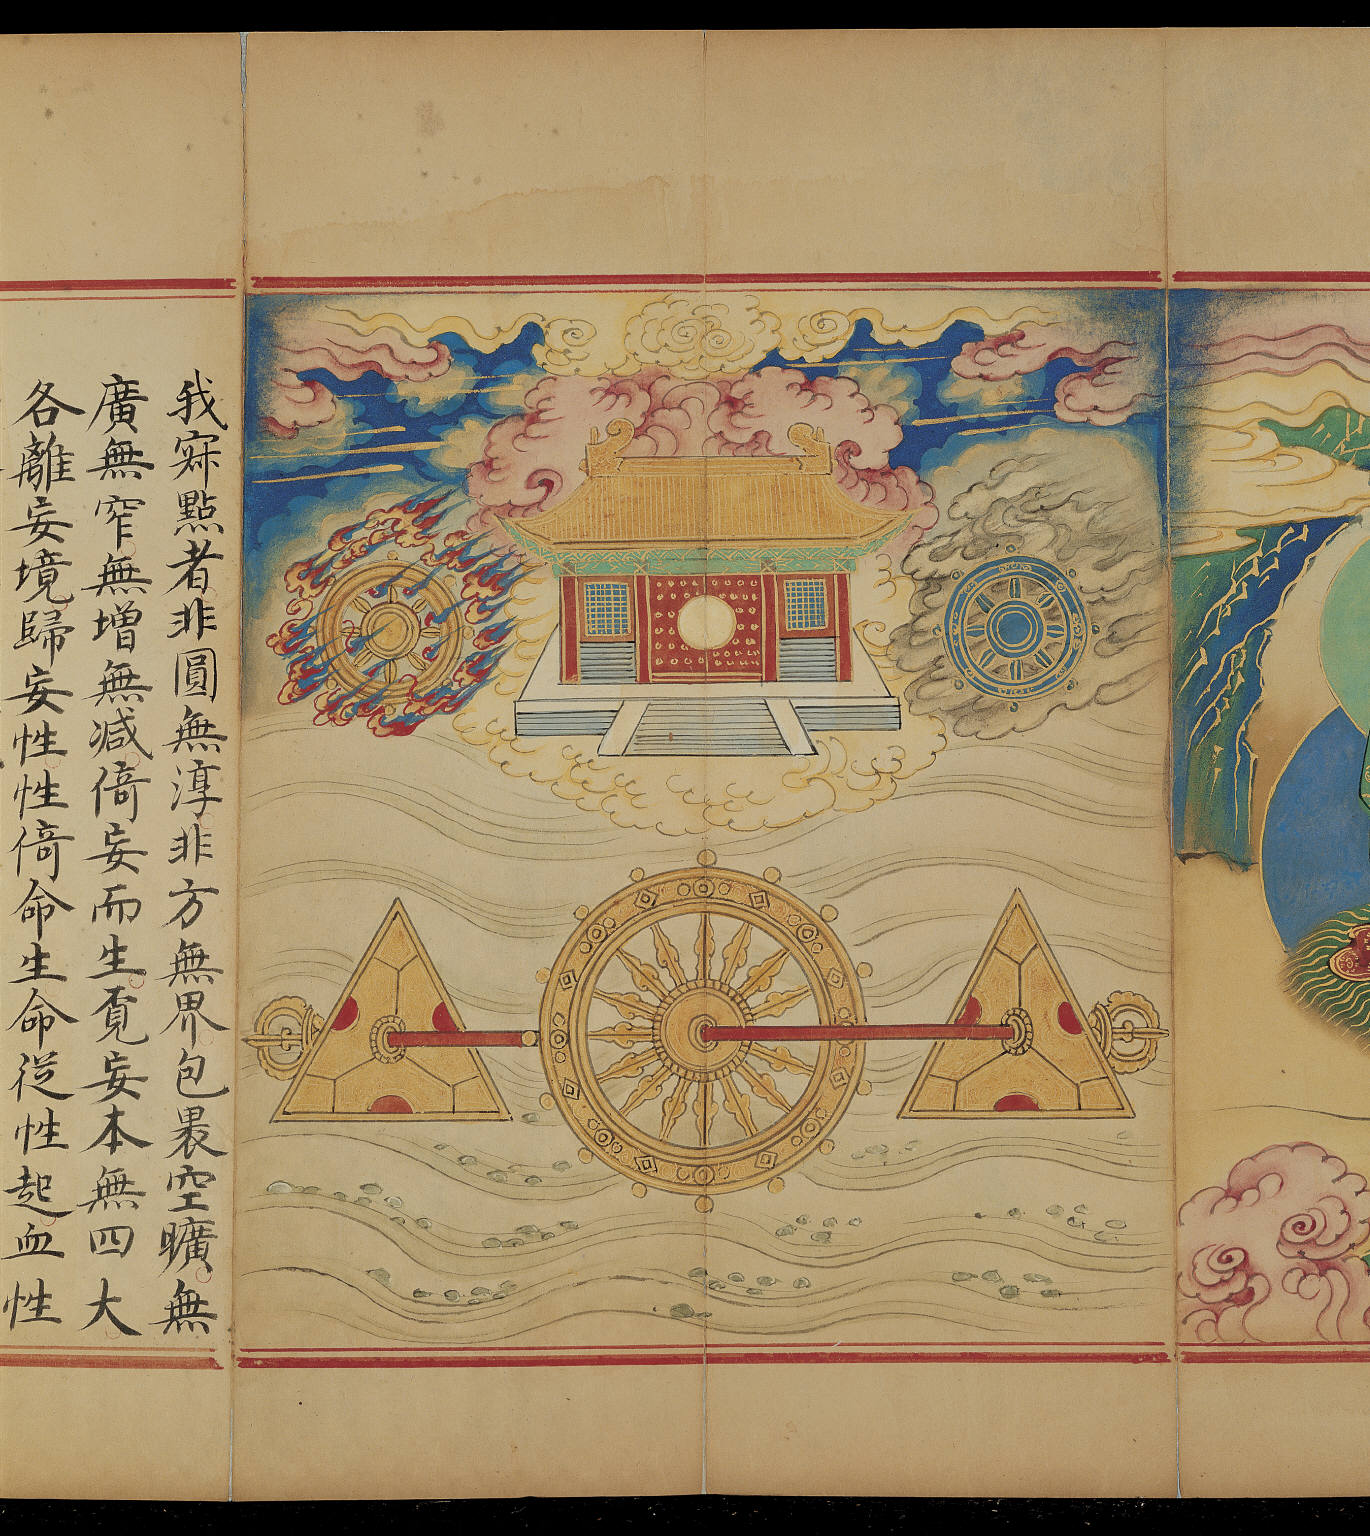 我寂點者非圓無淳非方無界包褁空曠無
廣無窄無增無减倚妄而生覔妄本無四大
各離妄境歸妄性性倚命生命從性起血性